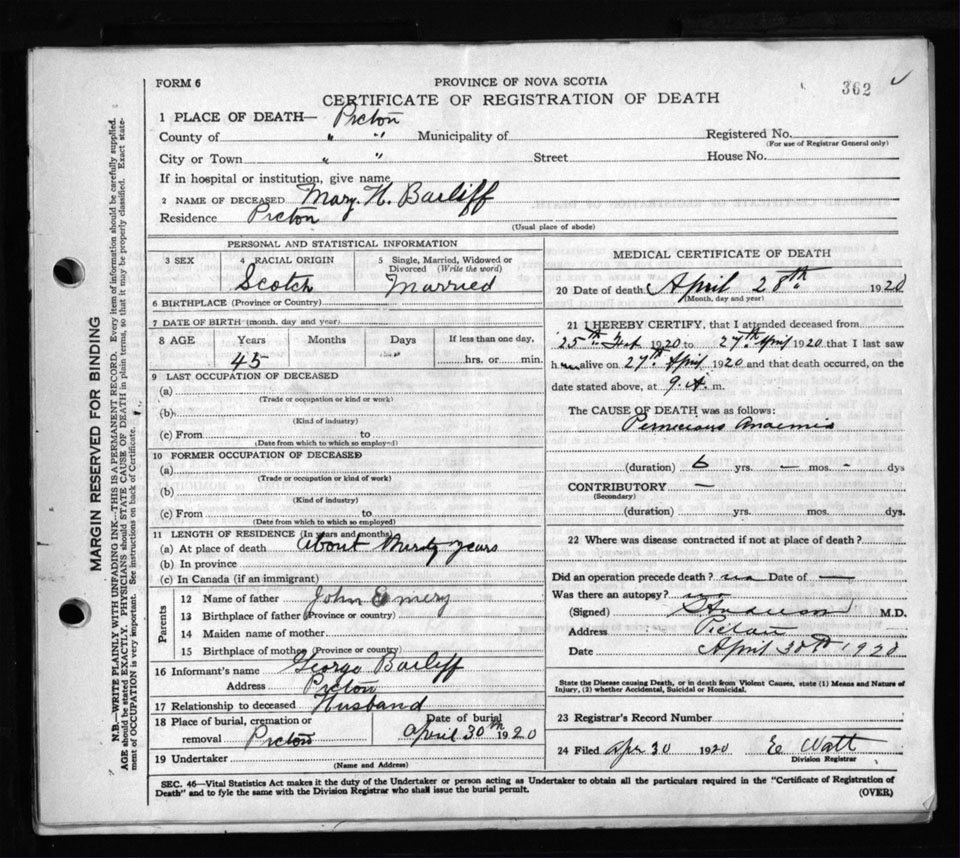 FORM 6
PROVINCE OF NOVA SCOTIA
362
CERTIFICATE OF REGISTRATION OF DEATH
1 PLACE OF DEATH— Picton
County of " " Municipality of Registered No.
(For use of Registrar General only)
City or Town " " Street House No.
If in hospital or institution, give name
2 NAME OF DECEASED Mary. H. Bailiff
Residence Picton
(Usual place of abode)
PERSONAL AND STATISTICAL INFORMATION
3 SEX
4 RACIAL ORIGIN
Scotch
5 Single, Married, Widowed or
Divorced (Write the word)
Married
6 BIRTHPLACE (Province or Country)
7 DATE OF BIRTH (month, day and year)
8 AGE Years Months Days If less than one day,
45 hrs. or min.
9 LAST OCCUPATION OF DECEASED
(a)
(Trade or occupation or kind or work)
(b)
(Kind of industry)
(c) From to
(Date from which to which so employed)
10 FORMER OCCUPATION OF DECEASED
(a)
(Trade or occupation or kind of work)
(b)
(Kind of industry)
(c) From to
(Date from which to which so employed)
11 LENGTH OF RESIDENCE (In years and months)
(a) At place of death About thirty years
(b) In province
(c) In Canada (if an immigrant)
Parents
12 Name of father John Emery
13 Birthplace of father (Province or country)
14 Maiden name of mother
15 Birthplace of mother (Province or country)
16 Informant's name George Bailiff
Address Picton
17 Relationship to deceased Husband
18 Place of burial, cremation or Date of burial
removal Picton April 30th 1920
19 Undertaker
(Name and Address)
MEDICAL CERTIFICATE OF DEATH
20 Date of death April 28th 1920
(Month, day and year)
21 I HEREBY CERTIFY, that I attended deceased from
25th Feb 1920 to 27th April 1920 that I last saw
h er alive on 27th April 1920 and that death occurred, on the
date stated above, at 9. A. m.
The CAUSE OF DEATH was as follows:
Pernicious Anaemia
(duration) 6 yrs. — mos. - dys
CONTRIBUTORY —
(Secondary)
(duration) yrs. mos. dys.
22 Where was disease contracted if not at place of death?
Did an operation precede death? no Date of —
Was there an autopsy? no
(Signed) M.D.
Address Pictou
Date April 30th 1920
State the Disease causing Death, or in death from Violent Causes, state (1) Means and Nature of
Injury, (2) whether Accidental, Suicidal or Homicidal.
23 Registrar's Record Number
24 Filed Apr 30 1920 E Watt
Division Registrar
SEC. 46—Vital Statistics Act makes it the duty of the Undertaker or person acting as Undertaker to obtain all the particulars required in the "Certificate of Registration of
Death" and to fyle the same with the Division Registrar who shall issue the burial permit.
(OVER)
MARGIN RESERVED FOR BINDING
N.B.—WRITE PLAINLY WITH UNFADING INK—THIS IS A PERMANENT RECORD. Every item of information should be carefully supplied.
AGE should be stated EXACTLY. PHYSICIANS should STATE CAUSE OF DEATH in plain terms, so that it may be properly classified. Exact state-
ment of OCCUPATION is very important. See instructions on back of Certificate.